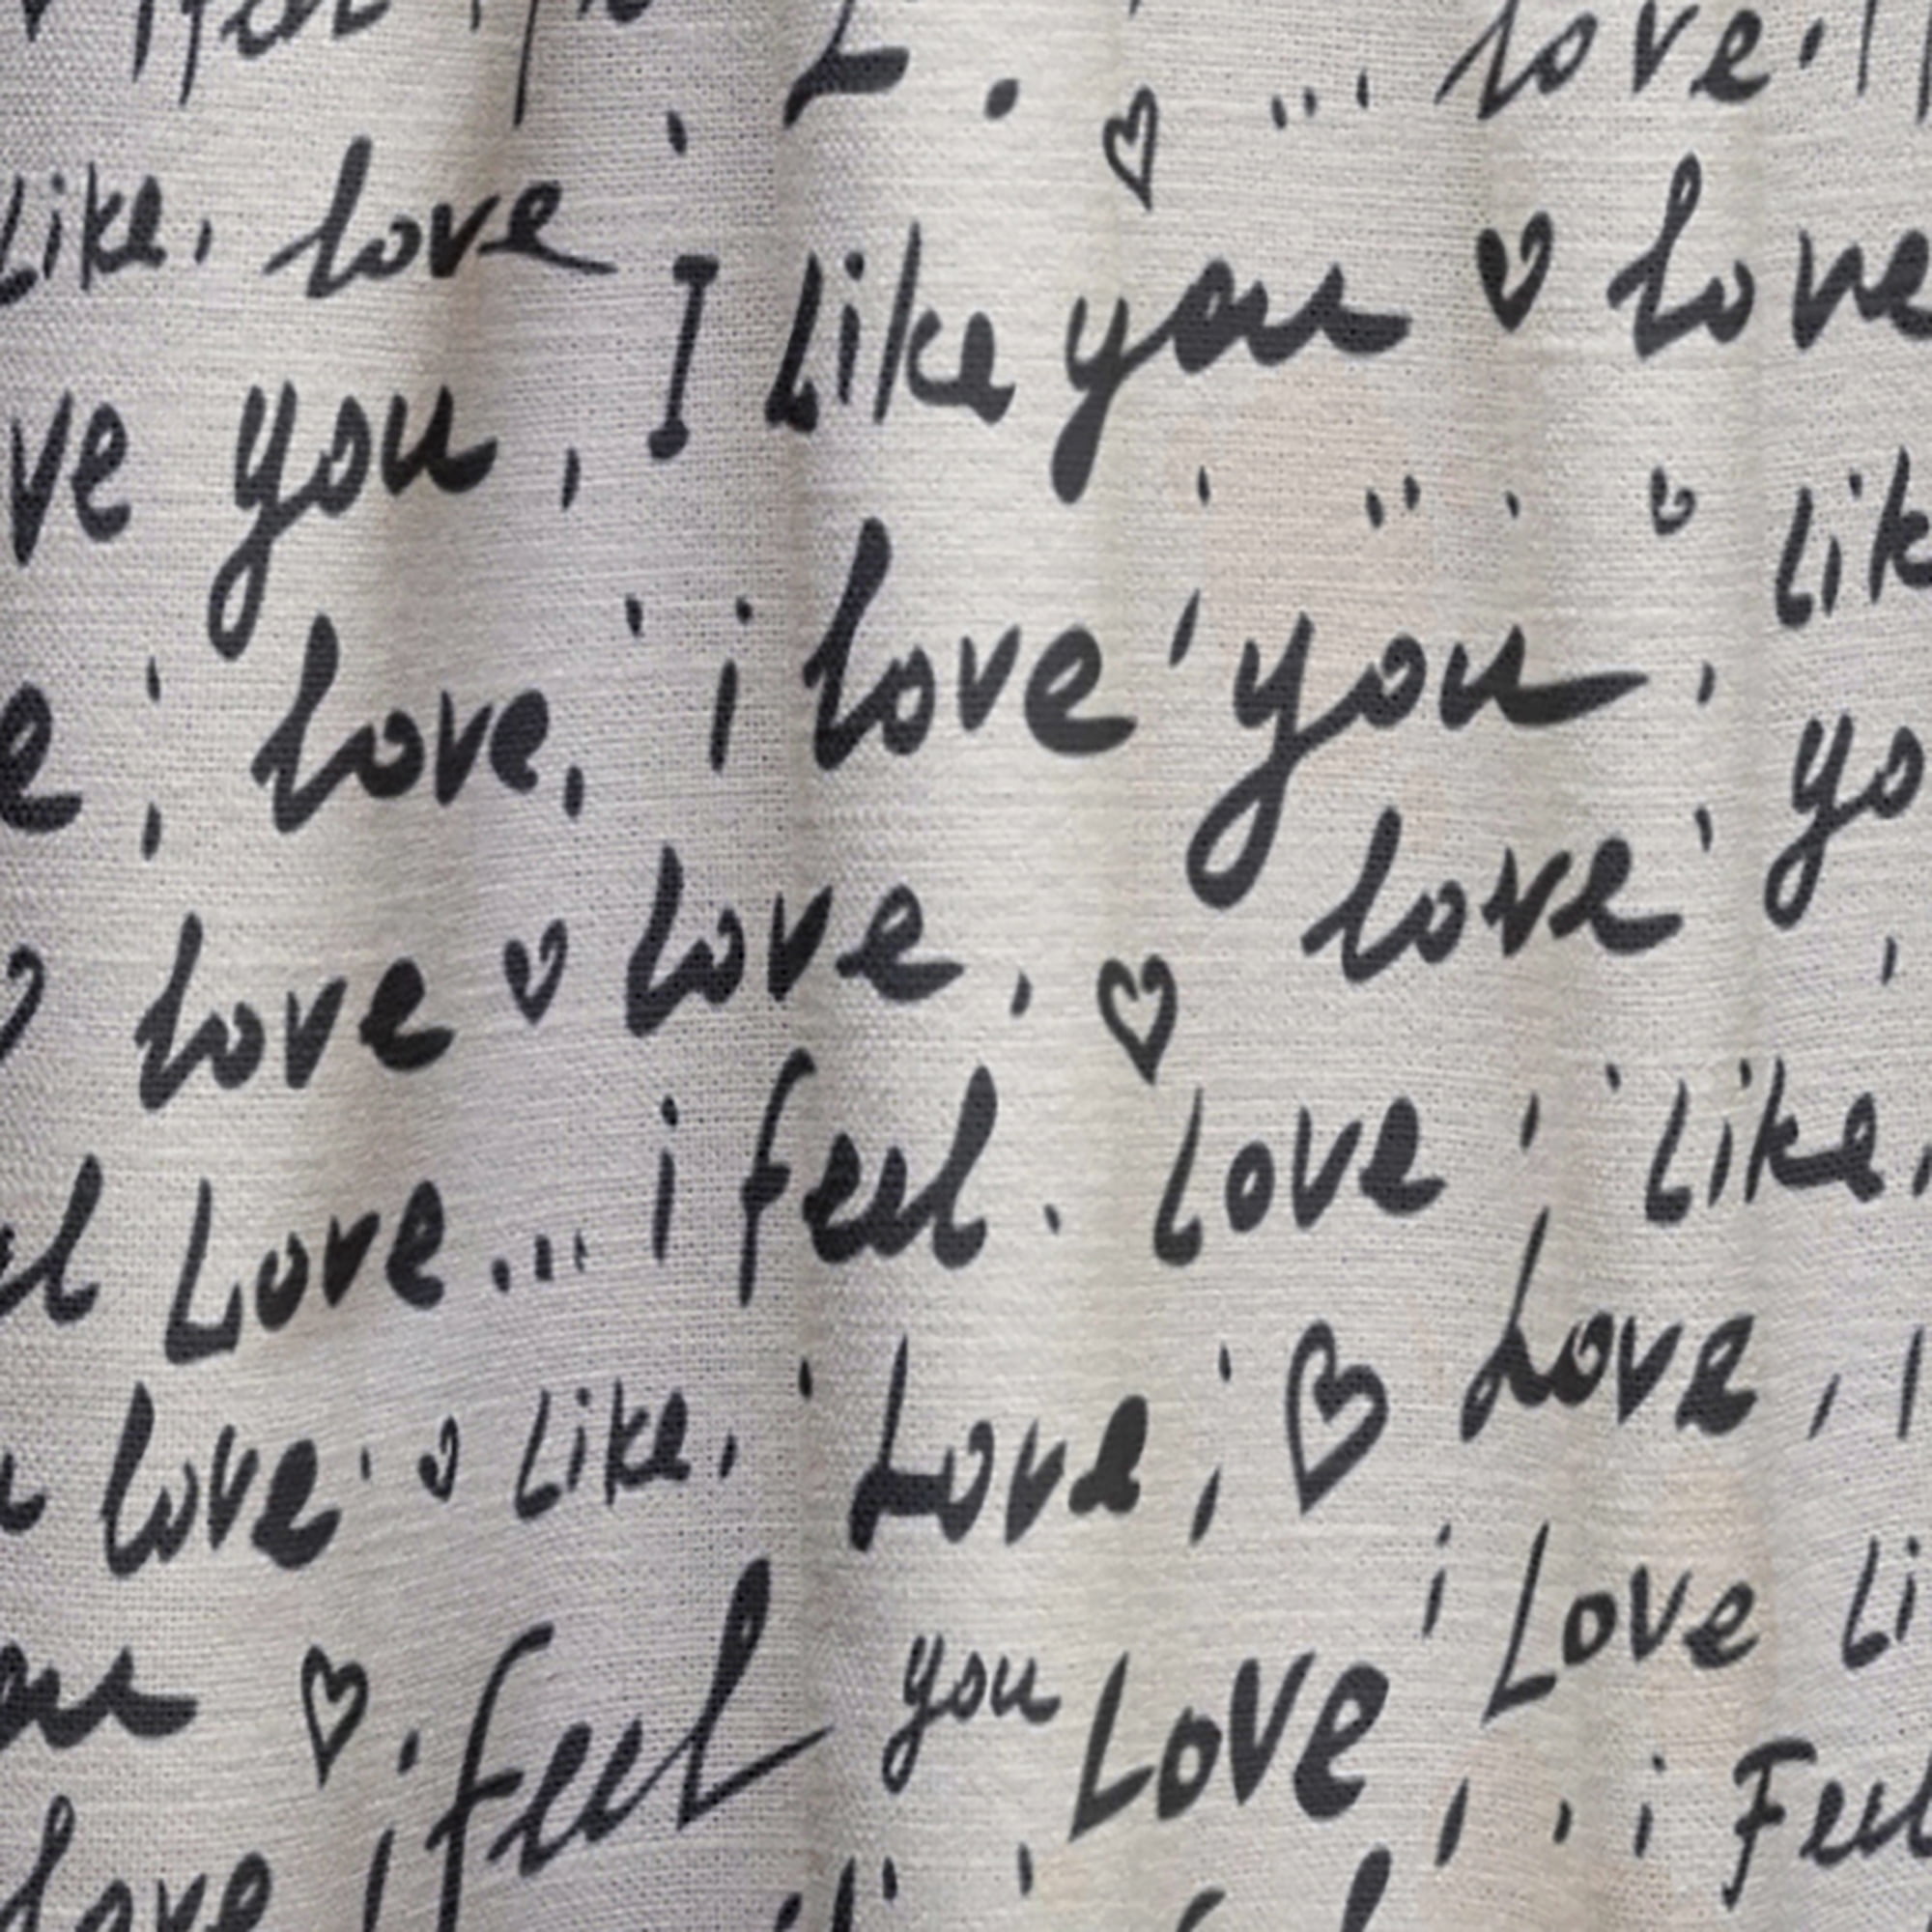 love.
Like, love
I Like you love
ve you,
Lik
love, i love you,
yo
love love, love
Love... i feel. Love Like,
love Like, Love, Love,
i Love Li
i feel you Love, i Feel
love